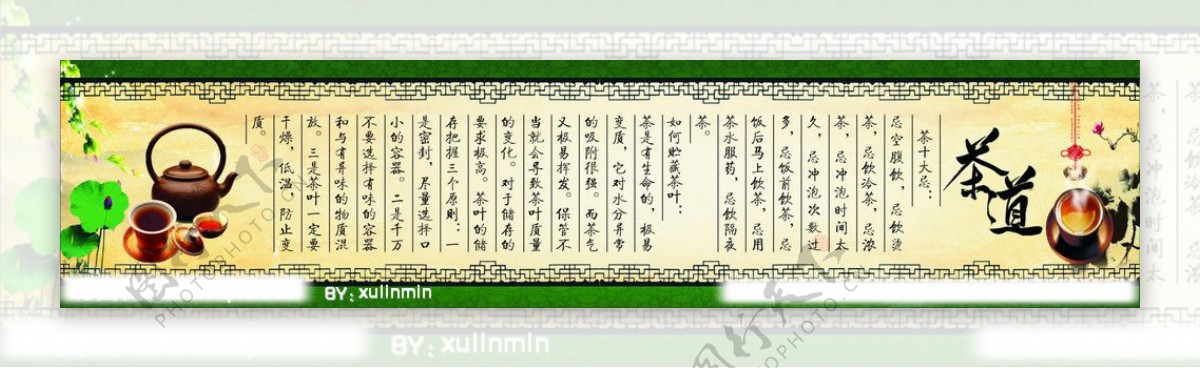 茶道
茶十大忌：
忌空腹饮，忌饮烫
茶，忌饮冷茶，忌浓
茶，忌冲泡时间太
久，忌冲泡次数过
多，忌饭前饮茶，忌
饭后马上饮茶，忌用
茶水服药，忌饮隔夜
茶。
如何贮藏茶叶：
茶是有生命的，极易
变质，它对水分异常
的吸附很强。而茶气
又极易挥发。保管不
当就会导致茶叶质量
的变化。对于储存的
要求极高。茶叶的储
存把握三个原则：一
是密封，尽量选择口
小的容器。二是千万
不要选择有味的容器
和与有异味的物质混
放。三是茶叶一定要
干燥，低温，防止变
质。
BY: xulinmin
BY: xulinmin